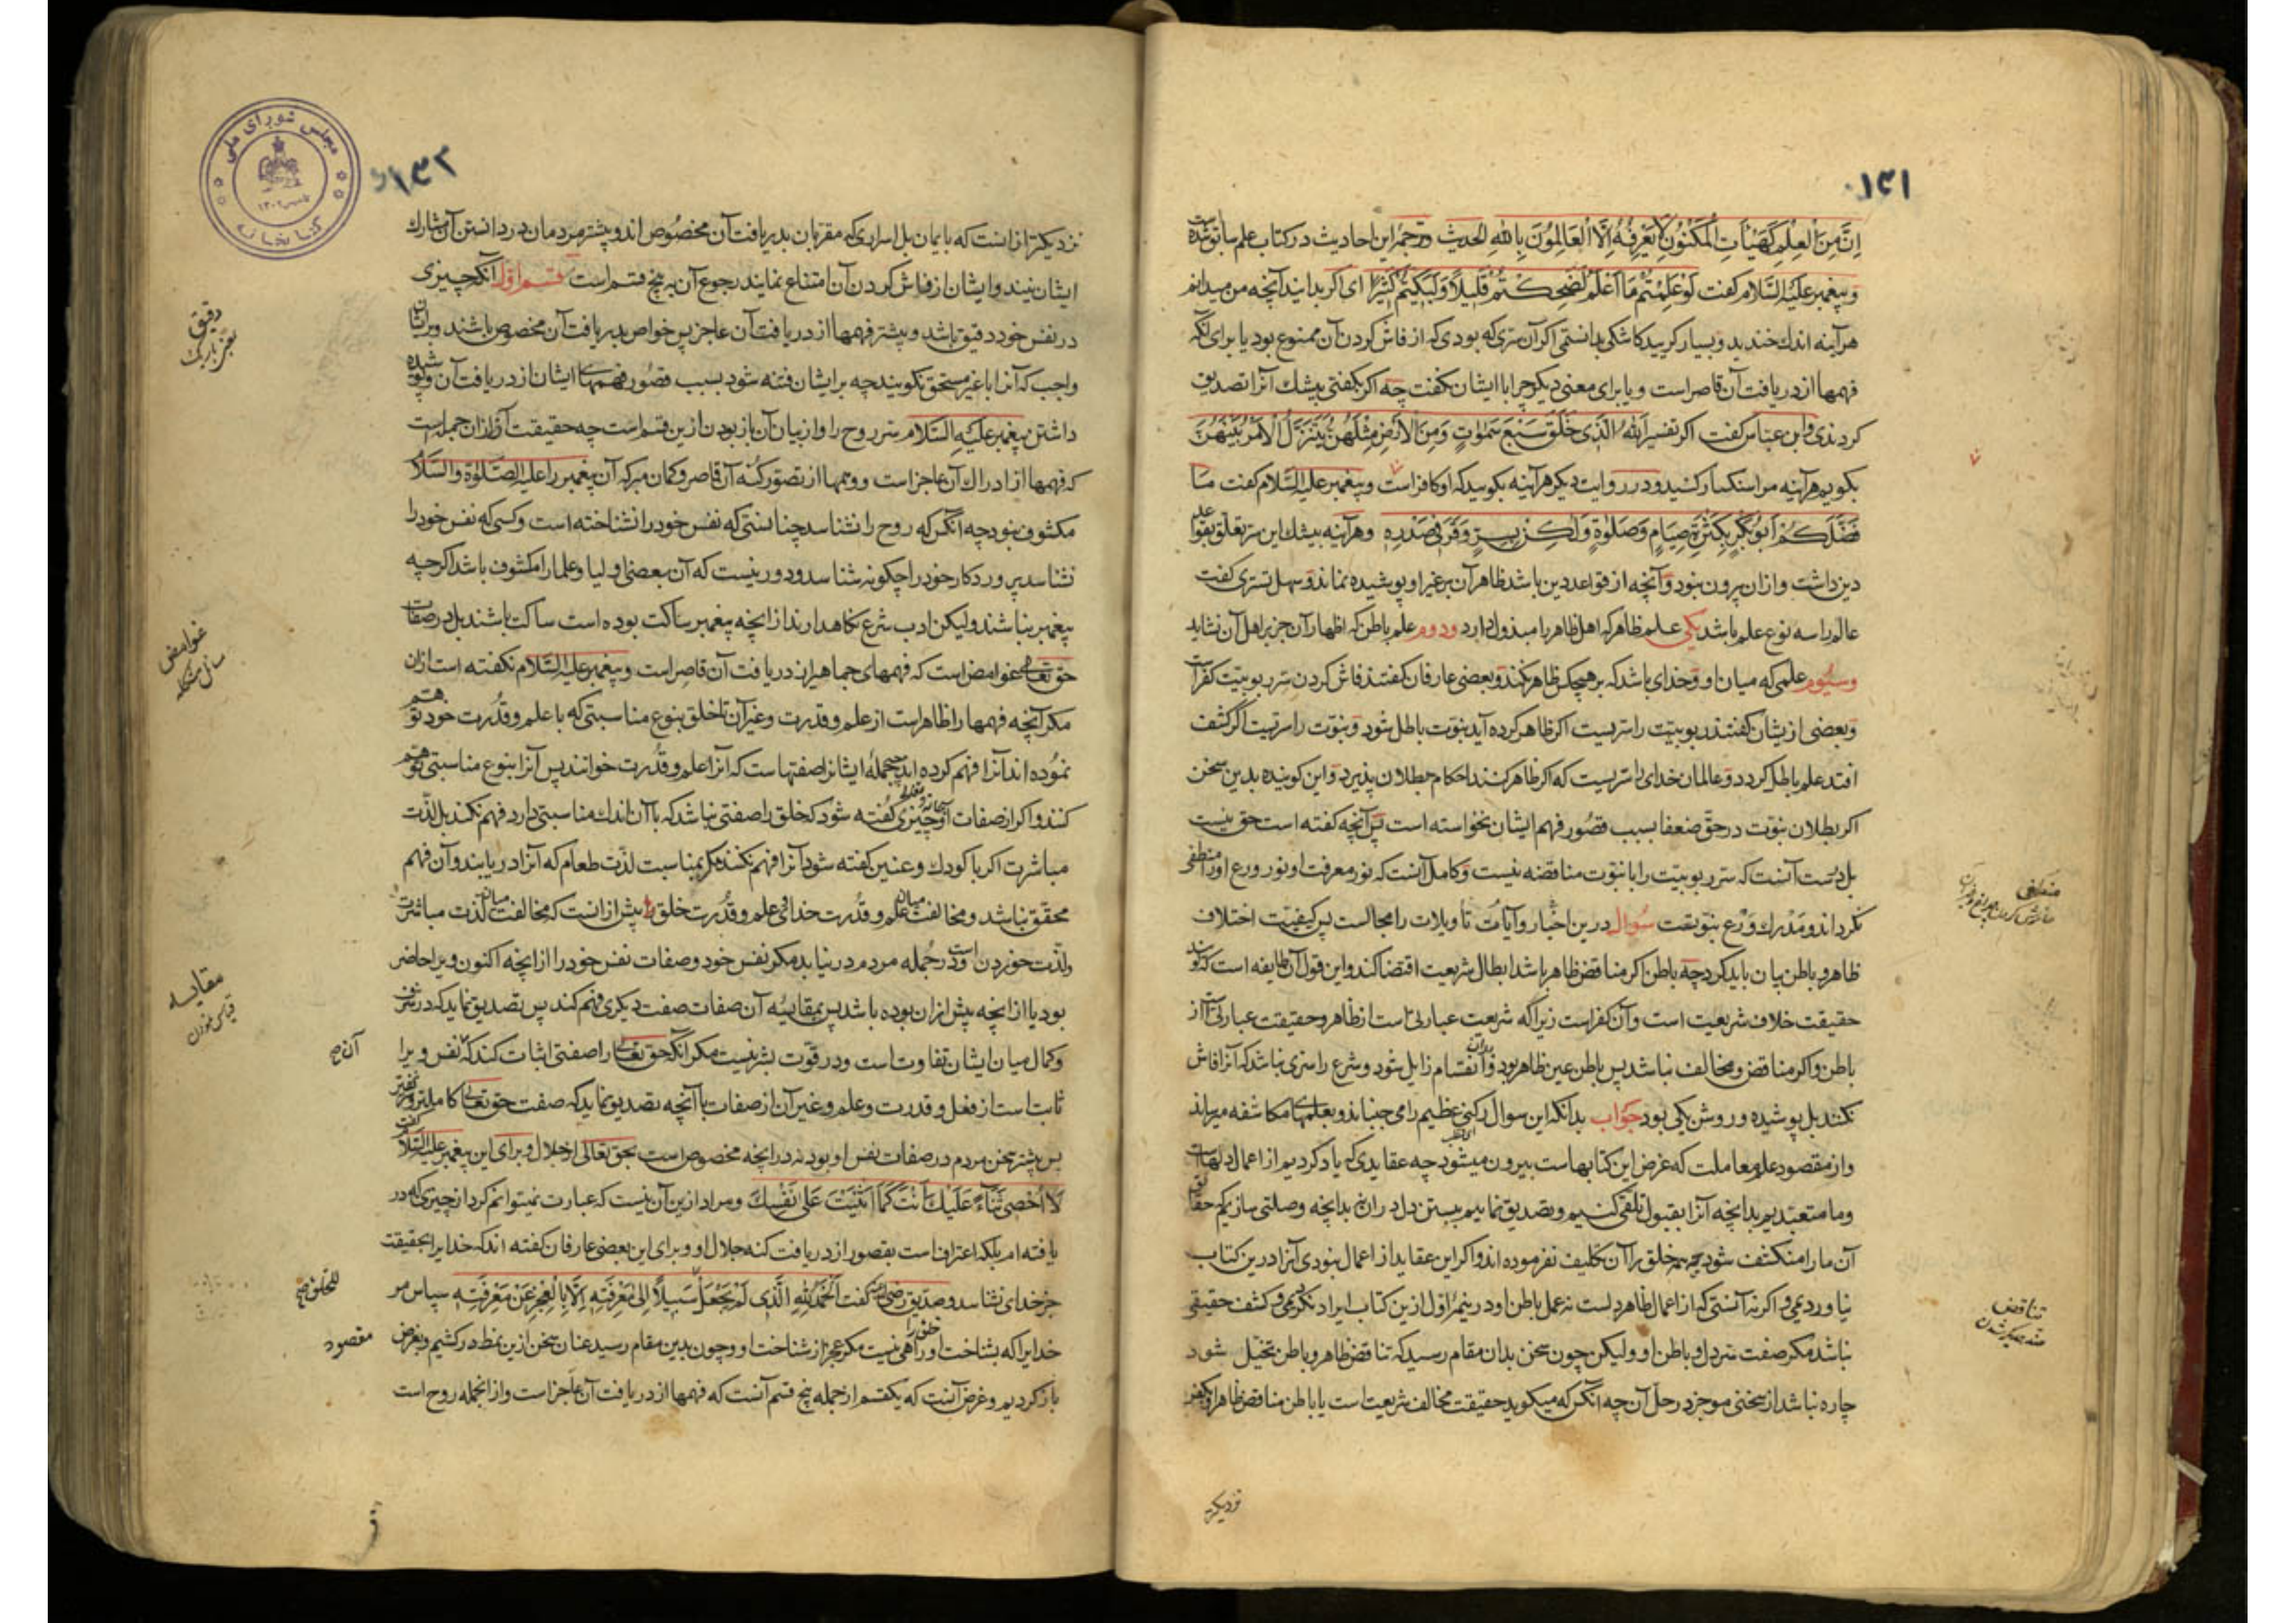 ۱۳۱
اِنَّ مِنَ الْعِلْمِ كَهَيْئَاتِ الْمَكْنُونِ لَا يَعْرِفُهُ اِلَّا الْعَالِمُونَ بِاللّٰهِ الحديث وترجمۀ این احادیث در کتاب علم سابق شده است
و پیغمبر علیه السلام کفت لَوْ عَلِمْتُمْ مَا اَعْلَمُ لَضَحِكْتُمْ قَلِيلًا وَلَبَكَيْتُمْ كَثِيرًا ای اکر بدانید آنچه من میدانم
هرآینه اندك خندید و بسیار کریید کاشکی بدانستمی اکر آن سرّی که بودی که از فاش کردن آن ممنوع بود یا برای آنکه
فهمها از دریافت آن قاصر است و یا برای معنی دیکر چرا با ایشان نکفت چه اکر بکفتی بیشك آنرا تصدیق
کردندی وابن عباس کفت اکر تفسیر اَللّٰهُ الَّذِی خَلَقَ سَبْعَ سَمٰوَاتٍ وَمِنَ الْاَرْضِ مِثْلَهُنَّ يَتَنَزَّلُ الْاَمْرُ بَيْنَهُنَّ
بکویم هرآینه مرا سنکسار کنید و در روایت دیکر هرآینه بکویید که او کافر است و پیغمبر علیه السلام کفت مَا
فَضَّلَكُمْ اَبُو بَكْرٍ بِكَثْرَةِ صِيَامٍ وَصَلٰوةٍ وَلٰكِنْ بِسِرٍّ وَقَرَ فِی صَدْرِهِ وهرآینه بیشك این سر تعلق بقواعد
دین داشت و ازان بیرون نبود و آنچه از قواعد دین باشد ظاهر آن بر غیر او پوشیده نماند و سهل تستری کفت
عالم را سه نوع علم باشد یکی علم ظاهر که اهل ظاهر را مبذول دارد ودوم علم باطن که اظهار آن جز بر اهل آن نشاید
وسیوم علمی که میان او و خدای باشد که بر هیچکس ظاهر نکند و بعضی عارفان کفتند فاش کردن سر ربوبیت کفر است
وبعضی ازیشان کفتند ربوبیت را سریست اکر ظاهر کرده آید نبوت باطل شود و نبوت را سریست اکر کشف
افتد علم باطل کردد و عالمان خدای را سریست که اکر ظاهر کنند احکام بطلان پذیرد و این کوینده بدین سخن
اکر بطلان نبوت در حق ضعفا بسبب قصور فهم ایشان نخواسته است پس آنچه کفته است حق نیست
بل درست آنست که سر ربوبیت را با نبوت مناقضه نیست و کامل آنست که نور معرفت او نور ورع او را منطفی
نکرداند و مدرك ورع نبوتست سؤال درین اخبار و آیات تأویلات را مجالست پس کیفیت اختلاف
ظاهر و باطن بیان باید کرد چه باطن اکر مناقض ظاهر باشد ابطال شریعت اقتضا کند و این قول آن طایفه است که کویند
حقیقت خلاف شریعت است و آن کفر است زیرا که شریعت عبارتست از ظاهر و حقیقت عبارتست از
باطن و اکر مناقض و مخالف نباشد پس باطن عین ظاهر بود و بدان انقسام زایل شود و شرع را سری نباشد که آنرا فاش
نکنند بل پوشیده و روشن یکی بود جواب بدانکه این سوال رکنی عظیم را می جنباند و بعلمهای مکاشفه میرساند
و از مقصود علم معاملت که غرض این کتابهاست بیرون میشود چه عقایدی که یاد کردیم از اعمال دلهاست
وما متعبدیم بدانچه آنرا بقبول تلقی کنیم و تصدیق نماییم ببستن دل دران نه بدانچه وصلتی سازیم که حقایق
آن ما را منکشف شود چه همه خلق را آن تکلیف نفرموده اند و اکر این عقاید از اعمال نبودی آنرا درین کتاب
نیاوردیمی و اکر نه آنستی که از اعمال ظاهر دلست نه عمل باطن او در نیمۀ اول ازین کتاب ایراد نکردیمی و کشف حقیقی
نباشد مکر صفت سر دل و باطن او ولیکن چون سخن بدان مقام رسید که تناقض ظاهر و باطن تخیل شود
چاره نباشد از سخنی موجز در حل آن چه آنکس که میکوید حقیقت مخالف شریعت است یا باطن مناقض ظاهر او بکفر
منطفی
تناقض
ضد یکدیکر شدن
نزدیکتر
۱۳۲
نزدیکتر ازانست که بایمان بل اسراری که مقربان بدریافت آن مخصوص اند و بیشتر مردمان در دانستن آن مشارك
ایشان نیند و ایشان از فاش کردن آن امتناع نمایند رجوع آن به پنج قسم است قسم اول آنکه چیزی
در نفس خود دقیق باشد و بیشتر فهمها از دریافت آن عاجز پس خواص بدریافت آن مخصوص باشند و بر ایشان
واجب که آنرا با غیر مستحق نکویند چه بر ایشان فتنه شود بسبب قصور فهمهای ایشان از دریافت آن و پوشیده
داشتن پیغمبر علیه السلام سر روح را و از بیان آن باز بودن ازین قسم است چه حقیقت آن ازان جمله است
که فهمها از ادراك آن عاجز است و وهمها از تصور کنه آن قاصر و کمان مبر که آن پیغمبر را علیه الصلوة والسلام
مکشوف نبود چه آنکس که روح را نشناسد چنانستی که نفس خود را نشناخته است و کسی که نفس خود را
نشناسد پروردکار خود را چکونه شناسد و دور نیست که آن بعضی اولیا و علما را مکشوف باشد اکرچه
پیغمبر نباشند ولیکن ادب شرع نکاهدارند از انچه پیغمبر ساکت بوده است ساکت باشند بل در صفات
حق تعالی غوامض است که فهمهای جماهیر از دریافت آن قاصر است و پیغمبر علیه السلام نکفته است ازان
مکر آنچه فهمها را ظاهر است از علم و قدرت و غیر آن تا خلق بنوع مناسبتی که با علم و قدرت خود توهم
نموده اند آنرا فهم کرده اند چه جملۀ ایشانرا صفتهاست که آنرا علم و قدرت خوانند پس آنرا بنوع مناسبتی توهم
کنند و اکر از صفات او چیزی کفته شود که خلق را صفتی نباشد که با آن اندك مناسبتی دارد فهم نکنند بل لذت
مباشرت اکر با کودك و عنین کفته شود آنرا فهم نکنند مکر بمناسبت لذت طعام که آنرا دریابند و آن فهم
محقق نباشد و مخالفت میان علم و قدرت خدای و علم و قدرت خلق بیش ازانست که مخالفت میان لذت مباشرت
ولذت خوردن است و در جمله مردم در نیابد مکر نفس خود و صفات نفس خود را از انچه اکنون ویرا حاضر
بود یا از انچه پیش ازان بوده باشد پس بمقایسۀ آن صفات صفت دیکری فهم کند پس تصدیق نماید که در شرف
و کمال میان ایشان تفاوت است و در قوت بشر نیست مکر آنکه حق تعالی را صفتی اثبات کند که نفس ویرا
ثابت است از فعل و قدرت و علم و غیر آن از صفات با آنچه تصدیق نماید که صفت حق تعالی کاملتر و شریفتر
پس بیشتر سخن مردم در صفات نفس او بود نه در انچه مخصوص است بحق تعالی از جلال و برای این پیغمبر علیه السلام کفت
لَا اُحْصِی ثَنَاءً عَلَيْكَ اَنْتَ كَمَا اَثْنَيْتَ عَلٰی نَفْسِكَ و مراد ازین آن نیست که عبارت نمیتوانم کرد از چیزی که در
یافته ام بلکه اعتراف است بقصور از دریافت کنه جلال او و برای این بعضی عارفان کفته اند که خدایرا بحقیقت
جز خدای نشناسد و صدیق رضی الله عنه کفت اَلْحَمْدُ لِلّٰهِ الَّذِی لَمْ يَجْعَلْ سَبِيلًا اِلٰی مَعْرِفَتِهِ اِلَّا بِالْعَجْزِ عَنْ مَعْرِفَتِهِ سپاس مر
خدایرا که بشناخت او خلق را راهی نیست مکر عجز از شناخت او و چون بدین مقام رسید عنان سخن ازین نمط در کشیم و بغرض
باز کردیم و غرض آنست که یکقسم از جمله پنج قسم آنست که فهمها از دریافت آن عاجز است و از انجمله روح است
دقیق
غوامض
مقایسه
قیاس نمودن
آن صح
للخلق صح
مقصود
مجلس شورای ملی
کتابخانه